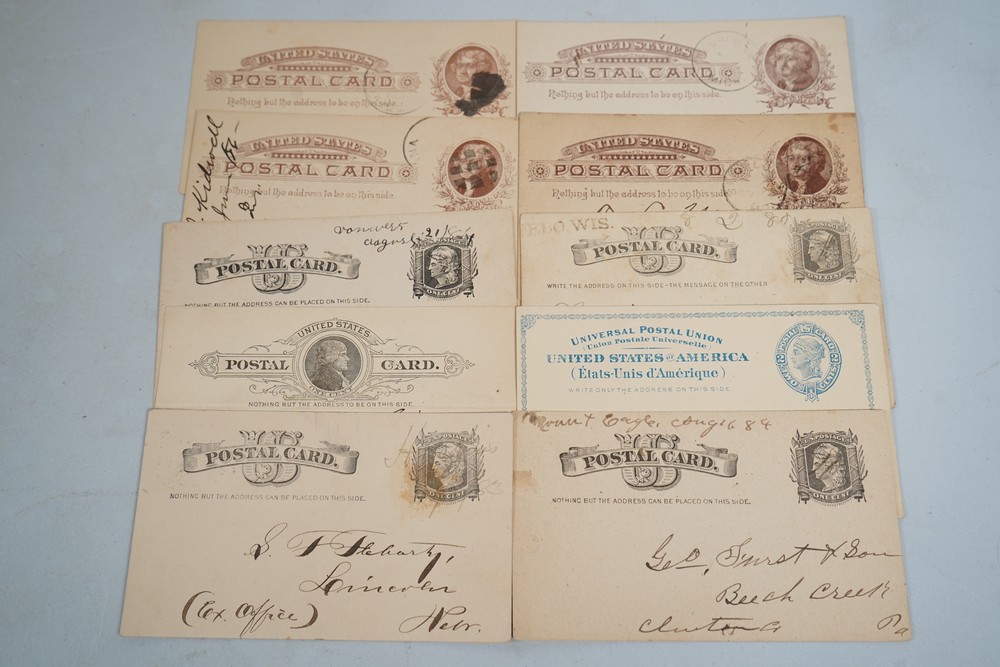 UNITED STATES
POSTAL CARD
Nothing but the address to be on this side.
UNITED STATES
POSTAL CARD
Nothing but the address to be on this side.
Kidwell
UNITED STATES
POSTAL CARD
Nothing but the address to be on this side.
UNITED STATES
POSTAL CARD
Nothing but the address to be on this side.
August 21
US
POSTAL CARD.
U.S. POSTAGE
ONE CENT
NOTHING BUT THE ADDRESS CAN BE PLACED ON THIS SIDE.
LO, WIS.
US
POSTAL CARD.
ONE CENT
WRITE THE ADDRESS ON THIS SIDE-THE MESSAGE ON THE OTHER
UNITED STATES
POSTAL CARD.
ONE CENT
NOTHING BUT THE ADDRESS TO BE ON THIS SIDE.
UNIVERSAL POSTAL UNION
(Union Postale Universelle)
UNITED STATES OF AMERICA
(États-Unis d'Amérique)
WRITE ONLY THE ADDRESS ON THIS SIDE
U.S. POSTAL CARD
TWO CENTS
US
POSTAL CARD.
U.S. POSTAGE
ONE CENT
NOTHING BUT THE ADDRESS CAN BE PLACED ON THIS SIDE.
Lincoln
(Ex. Office)
Nebr.
Mount Eagle, Aug 16 84
US
POSTAL CARD.
U.S. POSTAGE
ONE CENT
NOTHING BUT THE ADDRESS CAN BE PLACED ON THIS SIDE.
Geo, Furst & Son
Beech Creek
Clinton Pa